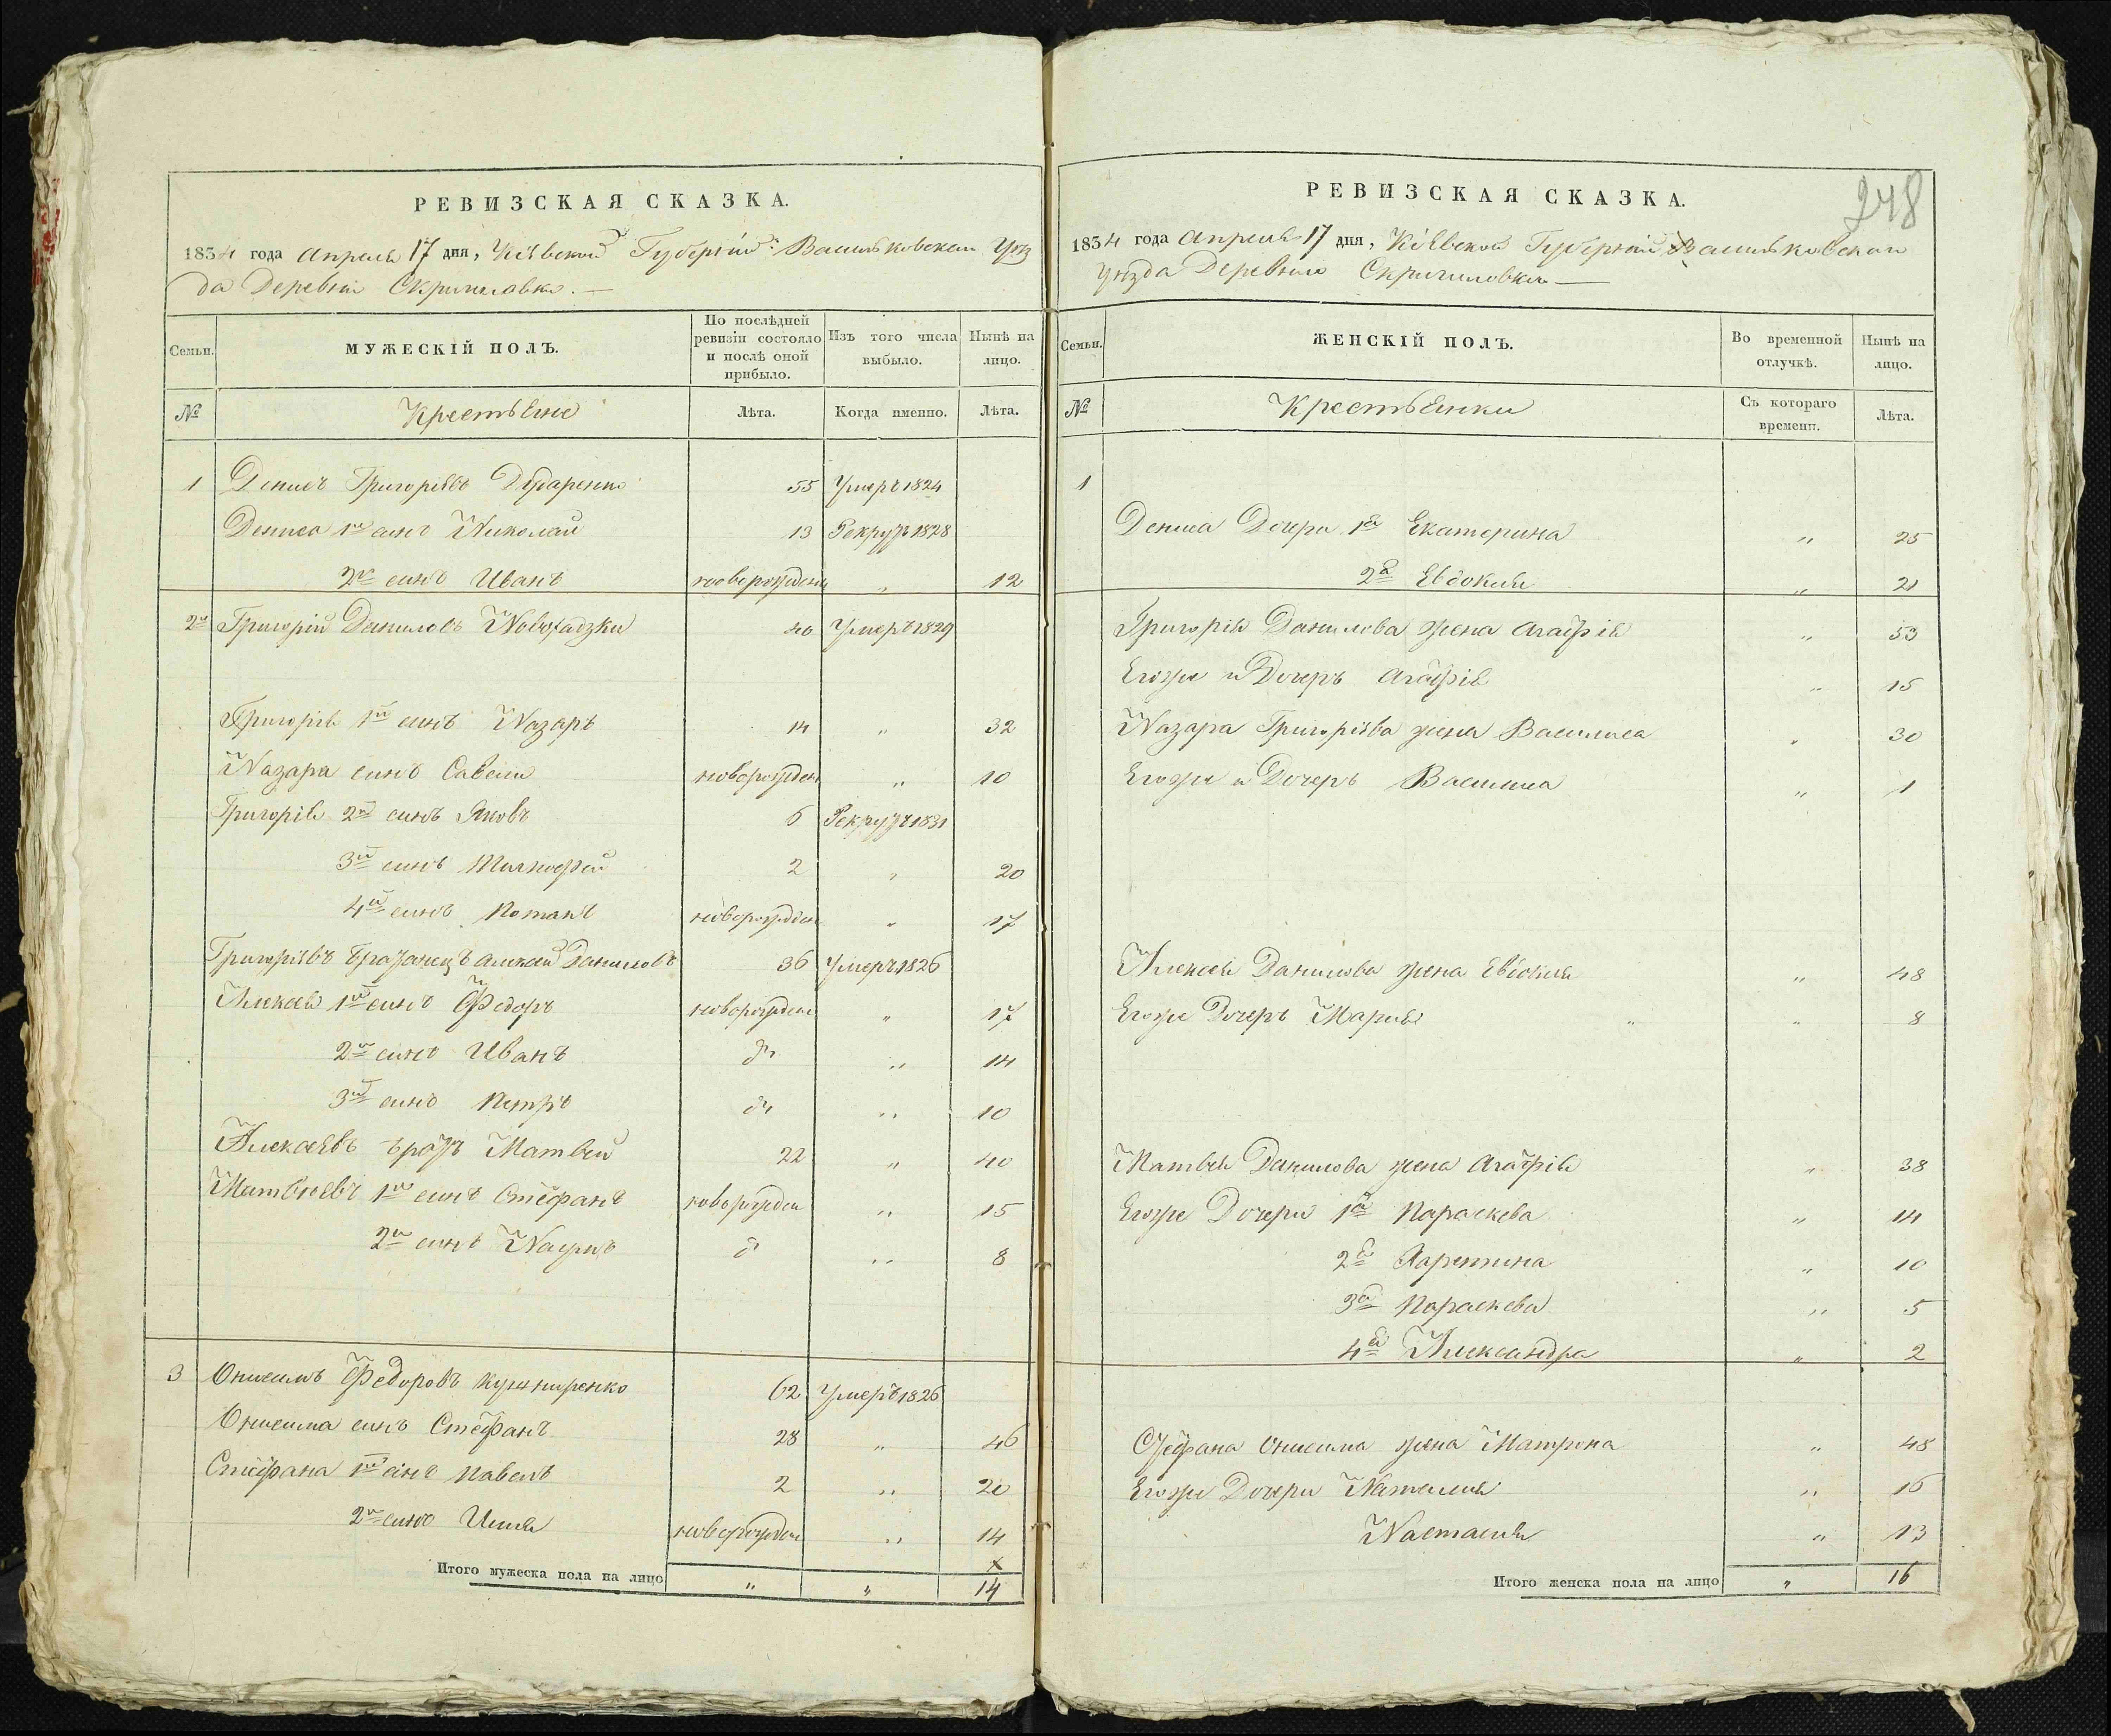 РЕВИЗСКАЯ СКАЗКА.
1834 года Апреля 17 дня, Кіевской Губерніи Васильковскаго Уѣз
да Деревни Скрипиловки. —
Семьи.
МУЖЕСКІЙ ПОЛЪ.
По послѣдней ревизіи состояло и послѣ оной прибыло.
Изъ того числа выбыло.
Нынѣ на лицо.
№
Крестьяне
Лѣта.
Когда именно.
Лѣта.
1 Денисъ Григоріевъ 55 Умеръ 1824
Дениса 1й синъ Николай 13 Рекрутъ 1828
2й синъ Иванъ новорожден „ 12
2й Григорій Даниловъ 40 Умеръ 1829
Григорія 1й синъ Назаръ 14 „ 32
Назара синъ Савели новорожден „ 10
Григорія 2й синъ Яковъ 6 Рекрутъ 1831
3й синъ Тимофей 2 „ 20
4й синъ Потапъ новорожден „ 17
Григоріевъ Братъ Алексей Даниловъ 36 Умеръ 1826
Алексея 1й синъ Федоръ новорожден „ 17
2й синъ Иванъ д „ 14
3й синъ Петръ д „ 10
Алексеевъ братъ Матвей 22 „ 40
Матвѣевъ 1й синъ Стефанъ новорожден „ 15
2й синъ Наумъ д „ 8
3 Онисимъ Федоровъ Кушниренко 62 Умеръ 1826
Онисима синъ Стефанъ 28 „ 46
Стефана 1й синъ Павелъ 2 „ 20
2й синъ Илия новорожден „ 14
х
Итого мужеска пола на лицо „ „ 14
248
РЕВИЗСКАЯ СКАЗКА.
1834 года Апреля 17 дня, Кіевской Губерніи Васильковскаго
уѣзда Деревни Скрипиловки —
Семьи.
ЖЕНСКІЙ ПОЛЪ.
Во временной отлучкѣ.
Нынѣ на лицо.
№
Крестьянки
Съ котораго времени.
Лѣта.
1
Дениса Дочери 1я Екатерина „ 25
2я Евдокия „ 21
Григорія Данилова жена Агафія „ 53
Егоже и Дочерь Агафія „ 15
Назара Григоріева жена Василиса „ 30
Егоже и Дочерь Василиса „ 1
Алексея Данилова жена Евдокия „ 48
Егоже Дочерь Мария „ „ 8
Матвея Данилова жена Агафія „ 38
Егоже Дочери 1я Параскева „ 14
2я „ 10
3я Параскева „ 5
4я Александра „ 2
Стефана Онисима жена Матрона „ 48
Егоже Дочери Наталия „ 16
Настасия „ 13
Итого женска пола на лицо „ 16